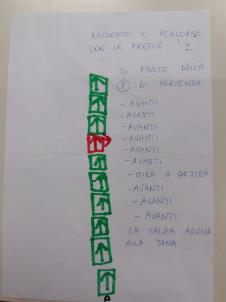 RACCONTO IL PERCORSO
CON LE FRECCE
SI PARTE DALLA
P DI PARTENZA
- AVANTI
- AVANTI
- AVANTI
- AVANTI
- AVANTI
- AVANTI
- GIRA A DESTRA
- AVANTI
- AVANTI
- AVANTI
LA TALPA ARRIVA
ALLA TANA
P